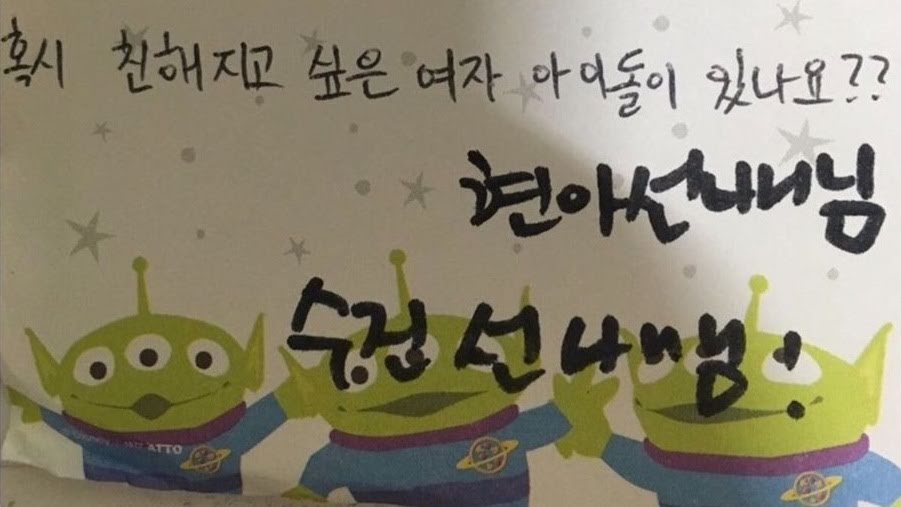 혹시 친해지고 싶은 여자 아이돌이 있나요??
현아선배님
수정 선배님!
ATTO